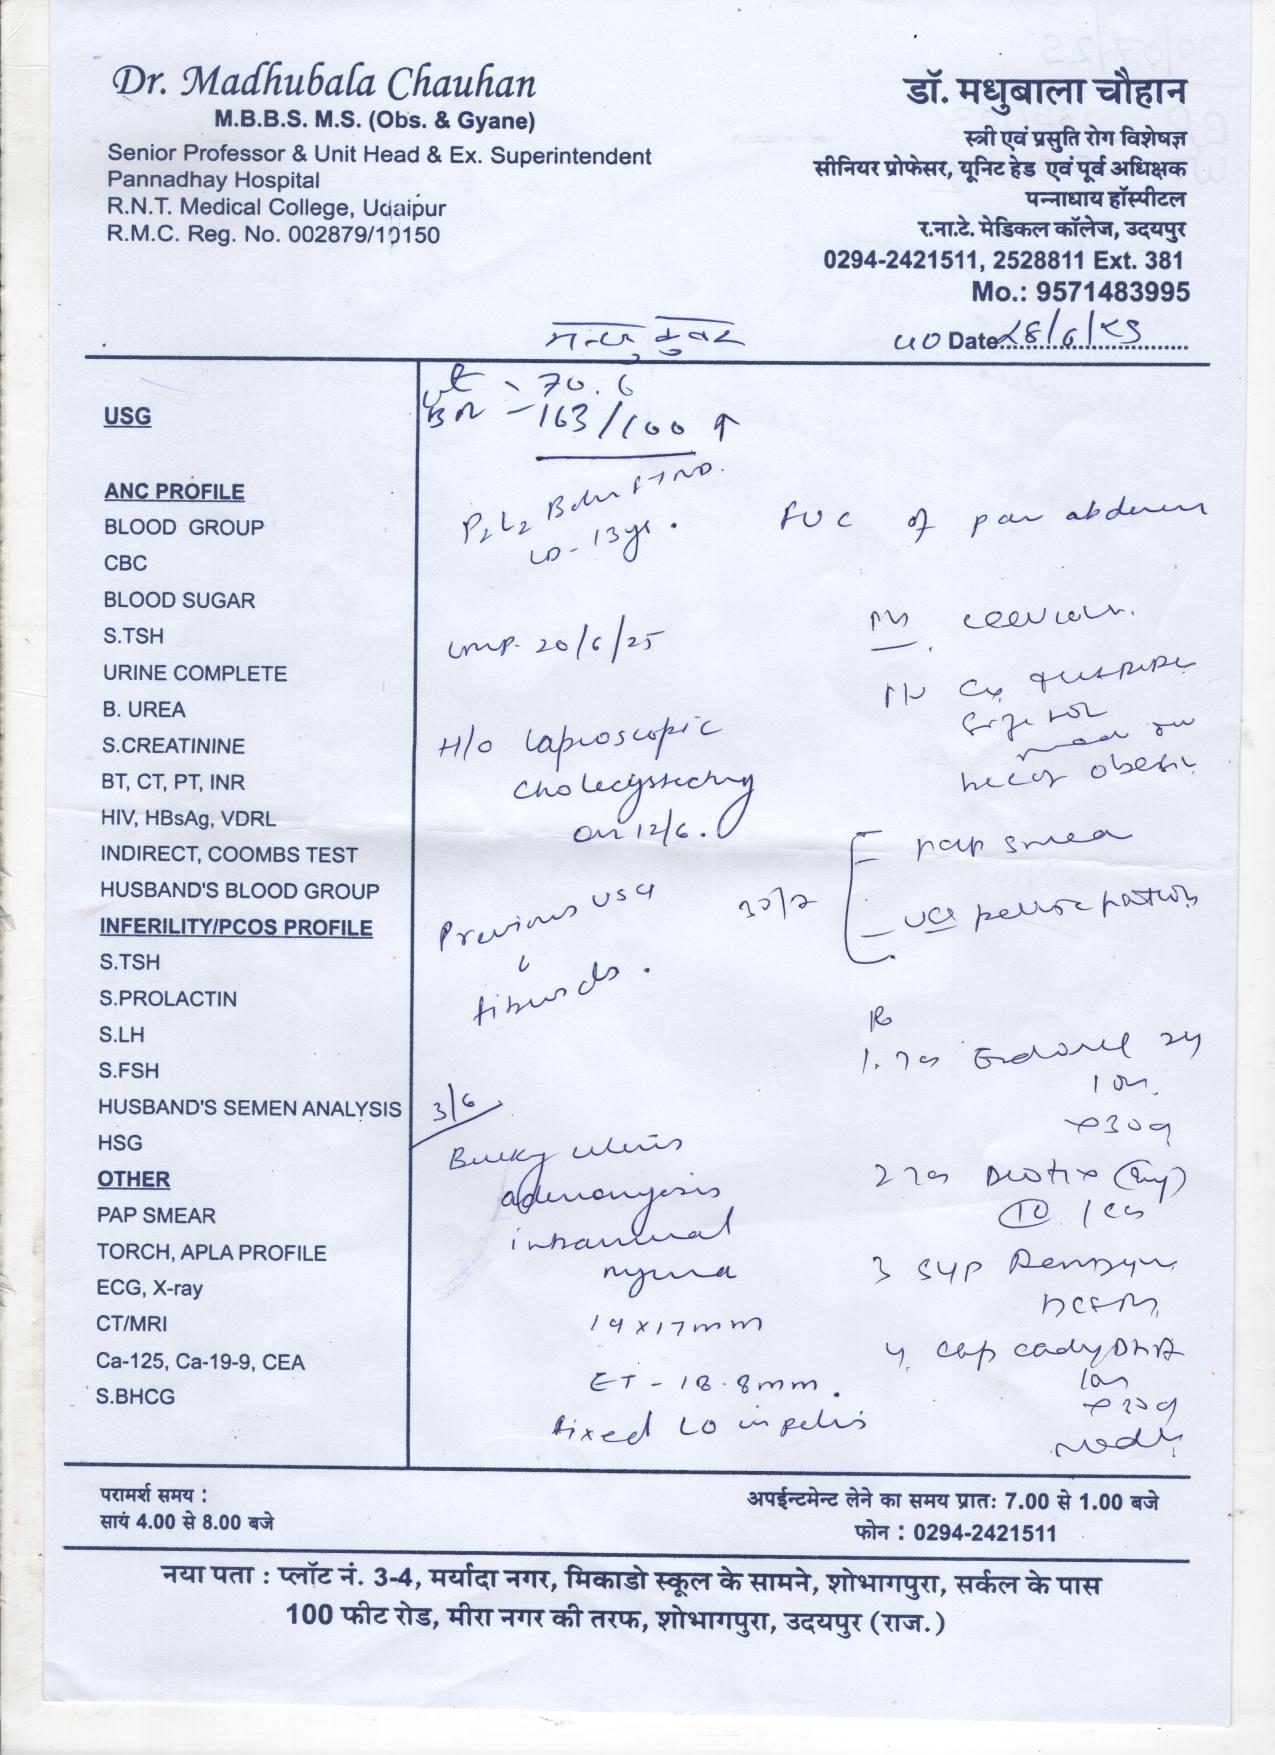 Dr. Madhubala Chauhan
M.B.B.S. M.S. (Obs. & Gyane)
Senior Professor & Unit Head & Ex. Superintendent
Pannadhay Hospital
R.N.T. Medical College, Udaipur
R.M.C. Reg. No. 002879/10150
डॉ. मधुबाला चौहान
स्त्री एवं प्रसुति रोग विशेषज्ञ
सीनियर प्रोफेसर, यूनिट हेड एवं पूर्व अधिक्षक
पन्नाधाय हॉस्पीटल
र.ना.टे. मेडिकल कॉलेज, उदयपुर
0294-2421511, 2528811 Ext. 381
Mo.: 9571483995
40 Date 28/6/25
USG
ANC PROFILE
BLOOD GROUP
CBC
BLOOD SUGAR
S.TSH
URINE COMPLETE
B. UREA
S.CREATININE
BT, CT, PT, INR
HIV, HBsAg, VDRL
INDIRECT, COOMBS TEST
HUSBAND'S BLOOD GROUP
INFERILITY/PCOS PROFILE
S.TSH
S.PROLACTIN
S.LH
S.FSH
HUSBAND'S SEMEN ANALYSIS
HSG
OTHER
PAP SMEAR
TORCH, APLA PROFILE
ECG, X-ray
CT/MRI
Ca-125, Ca-19-9, CEA
S.BHCG
wt - 70.6
- 163/100 ↑
P2L2 Both FTND.
LD - 13yr.
LMP. 20/6/25
H/o Laproscopic
Cholecystectomy
on 12/6.
Previous USG
fibroids.
3/6
Bulky uterus
adenomyosis
intramural
myoma
19 x 17mm
ET - 18.8mm.
fixed LO in pelvis
of
obese
pap smear
pelvic
1.
2
3 syp
4. cap
परामर्श समय :
सायं 4.00 से 8.00 बजे
अपईन्टमेन्ट लेने का समय प्रातः 7.00 से 1.00 बजे
फोन : 0294-2421511
नया पता : प्लॉट नं. 3-4, मर्यादा नगर, मिकाडो स्कूल के सामने, शोभागपुरा, सर्कल के पास
100 फीट रोड, मीरा नगर की तरफ, शोभागपुरा, उदयपुर (राज.)